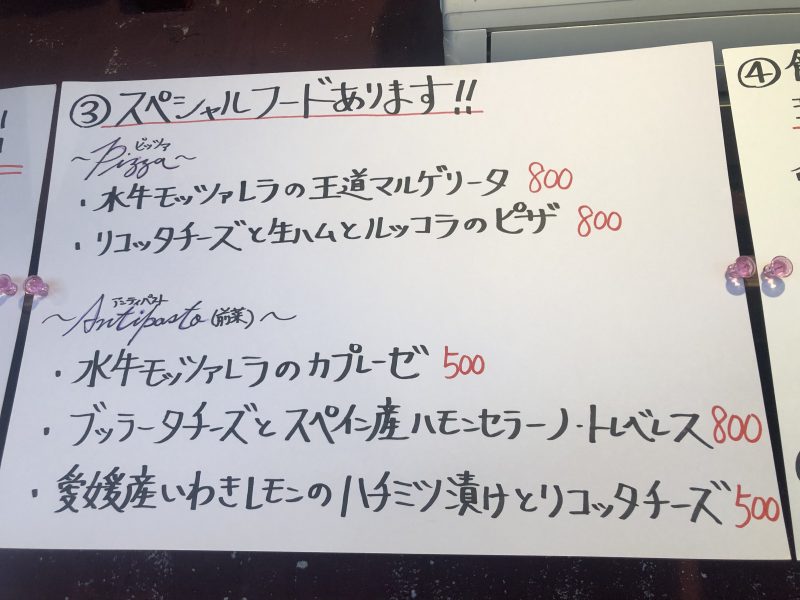 ③スペシャルフードあります!!
ピッツァ
～Pizza～
・水牛モッツァレラの王道マルゲリータ 800
・リコッタチーズと生ハムとルッコラのピザ 800
アンティパスト
～Antipasto(前菜)～
・水牛モッツァレラのカプレーゼ 500
・ブッラータチーズとスペイン産ハモンセラーノ・トレベレス 800
・愛媛産いわきレモンのハチミツ漬けとリコッタチーズ 500
④